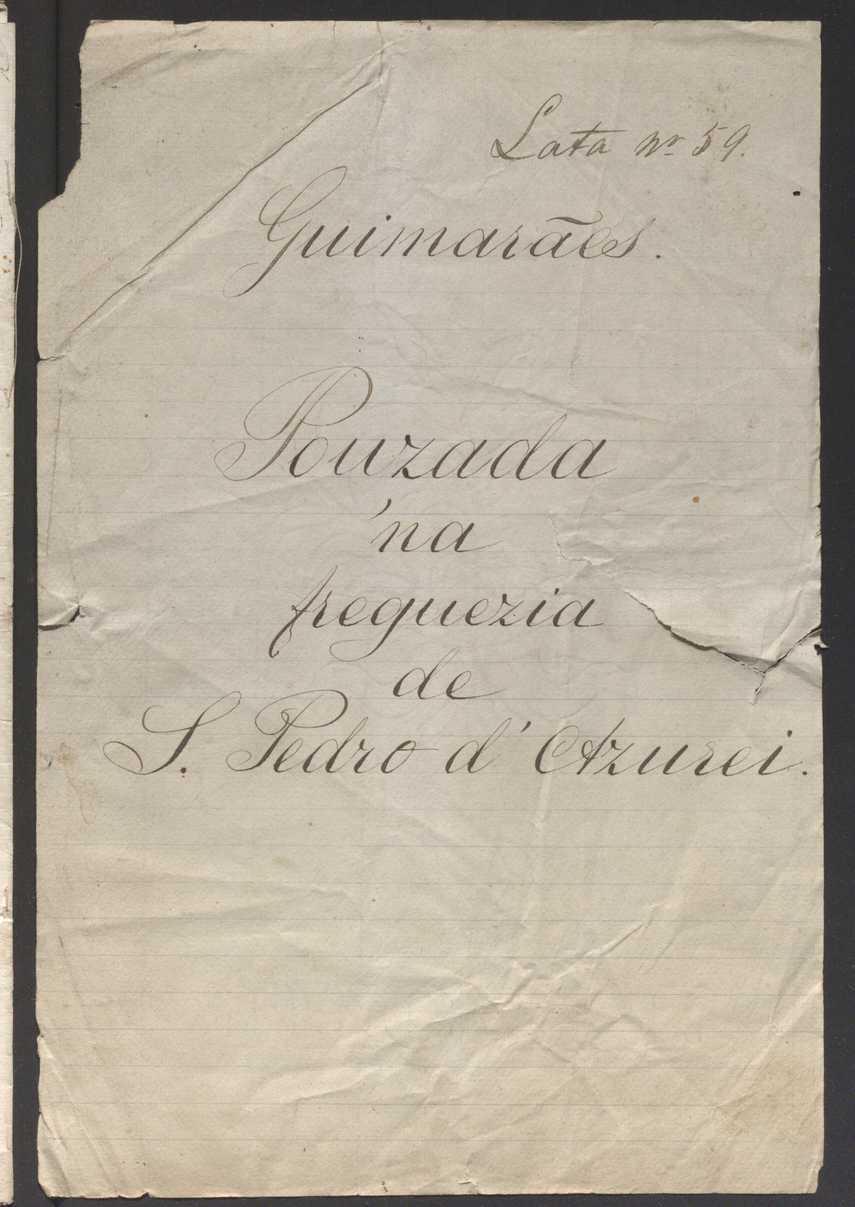 Lata nº 59.
Guimarães.
Pouzada
'na
freguezia
de
S. Pedro d'Azurei.